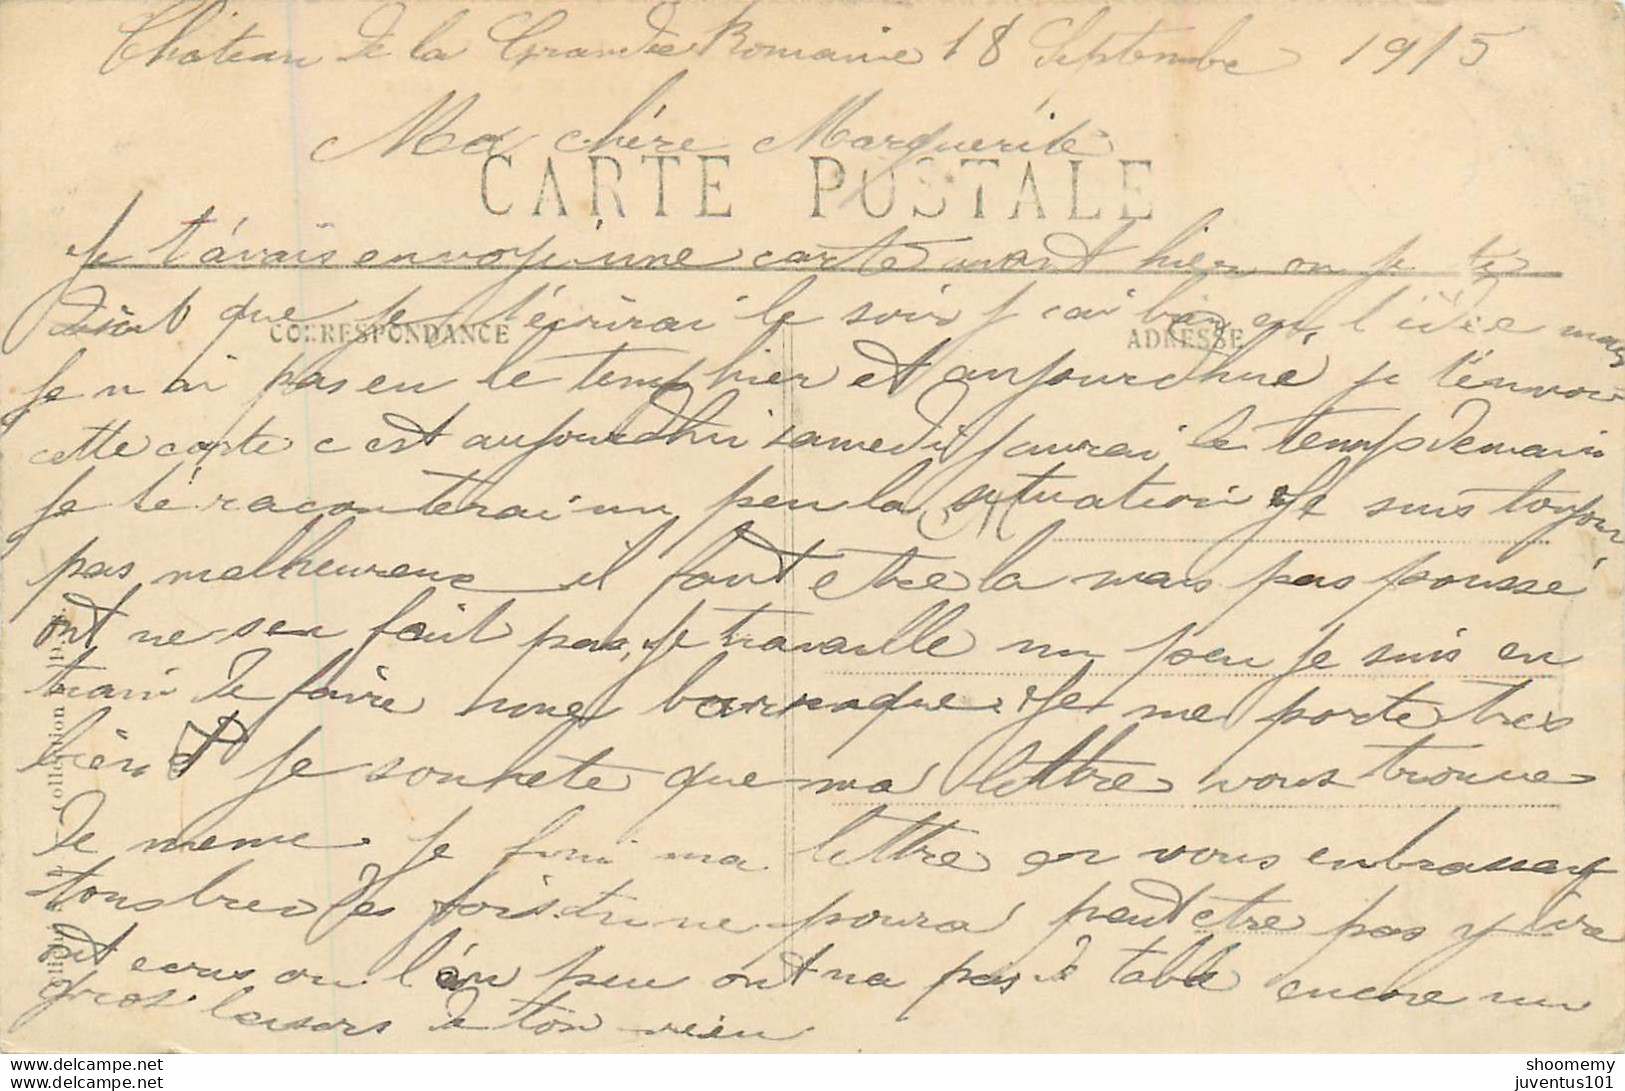 Château de la Grande Romaine 18 Septembre 1915
Ma chère Marguerite
CARTE POSTALE
Je t'avais envoyé une carte avant hier on je te
disait que je t'écrirai le soir j'ai bien eu l'idée mais
CORRESPONDANCE
ADRESSE
je n ai pas eu le temp hier et aujourdhui je t'envoi
cette carte c est aujourdhui samedi j'aurai le temps demain
je té raconterai un peu la situation Je suis toujour
pas malheureux il faut etre la mais pas poussé
ont ne sen fait pas, Je travaille un peu je suis en
train de faire une barraque. Je me porte tres
bien et je souhete que ma lettre vous trouve
de meme. Je fini ma lettre en vous enbrassent
tous bien des fois tu ne poura peut etre pas y lire
ont ecris ou l'on peu ont na pas de table encore un
gros baisers de ton vieu
Collection
shoomemy
juventus101